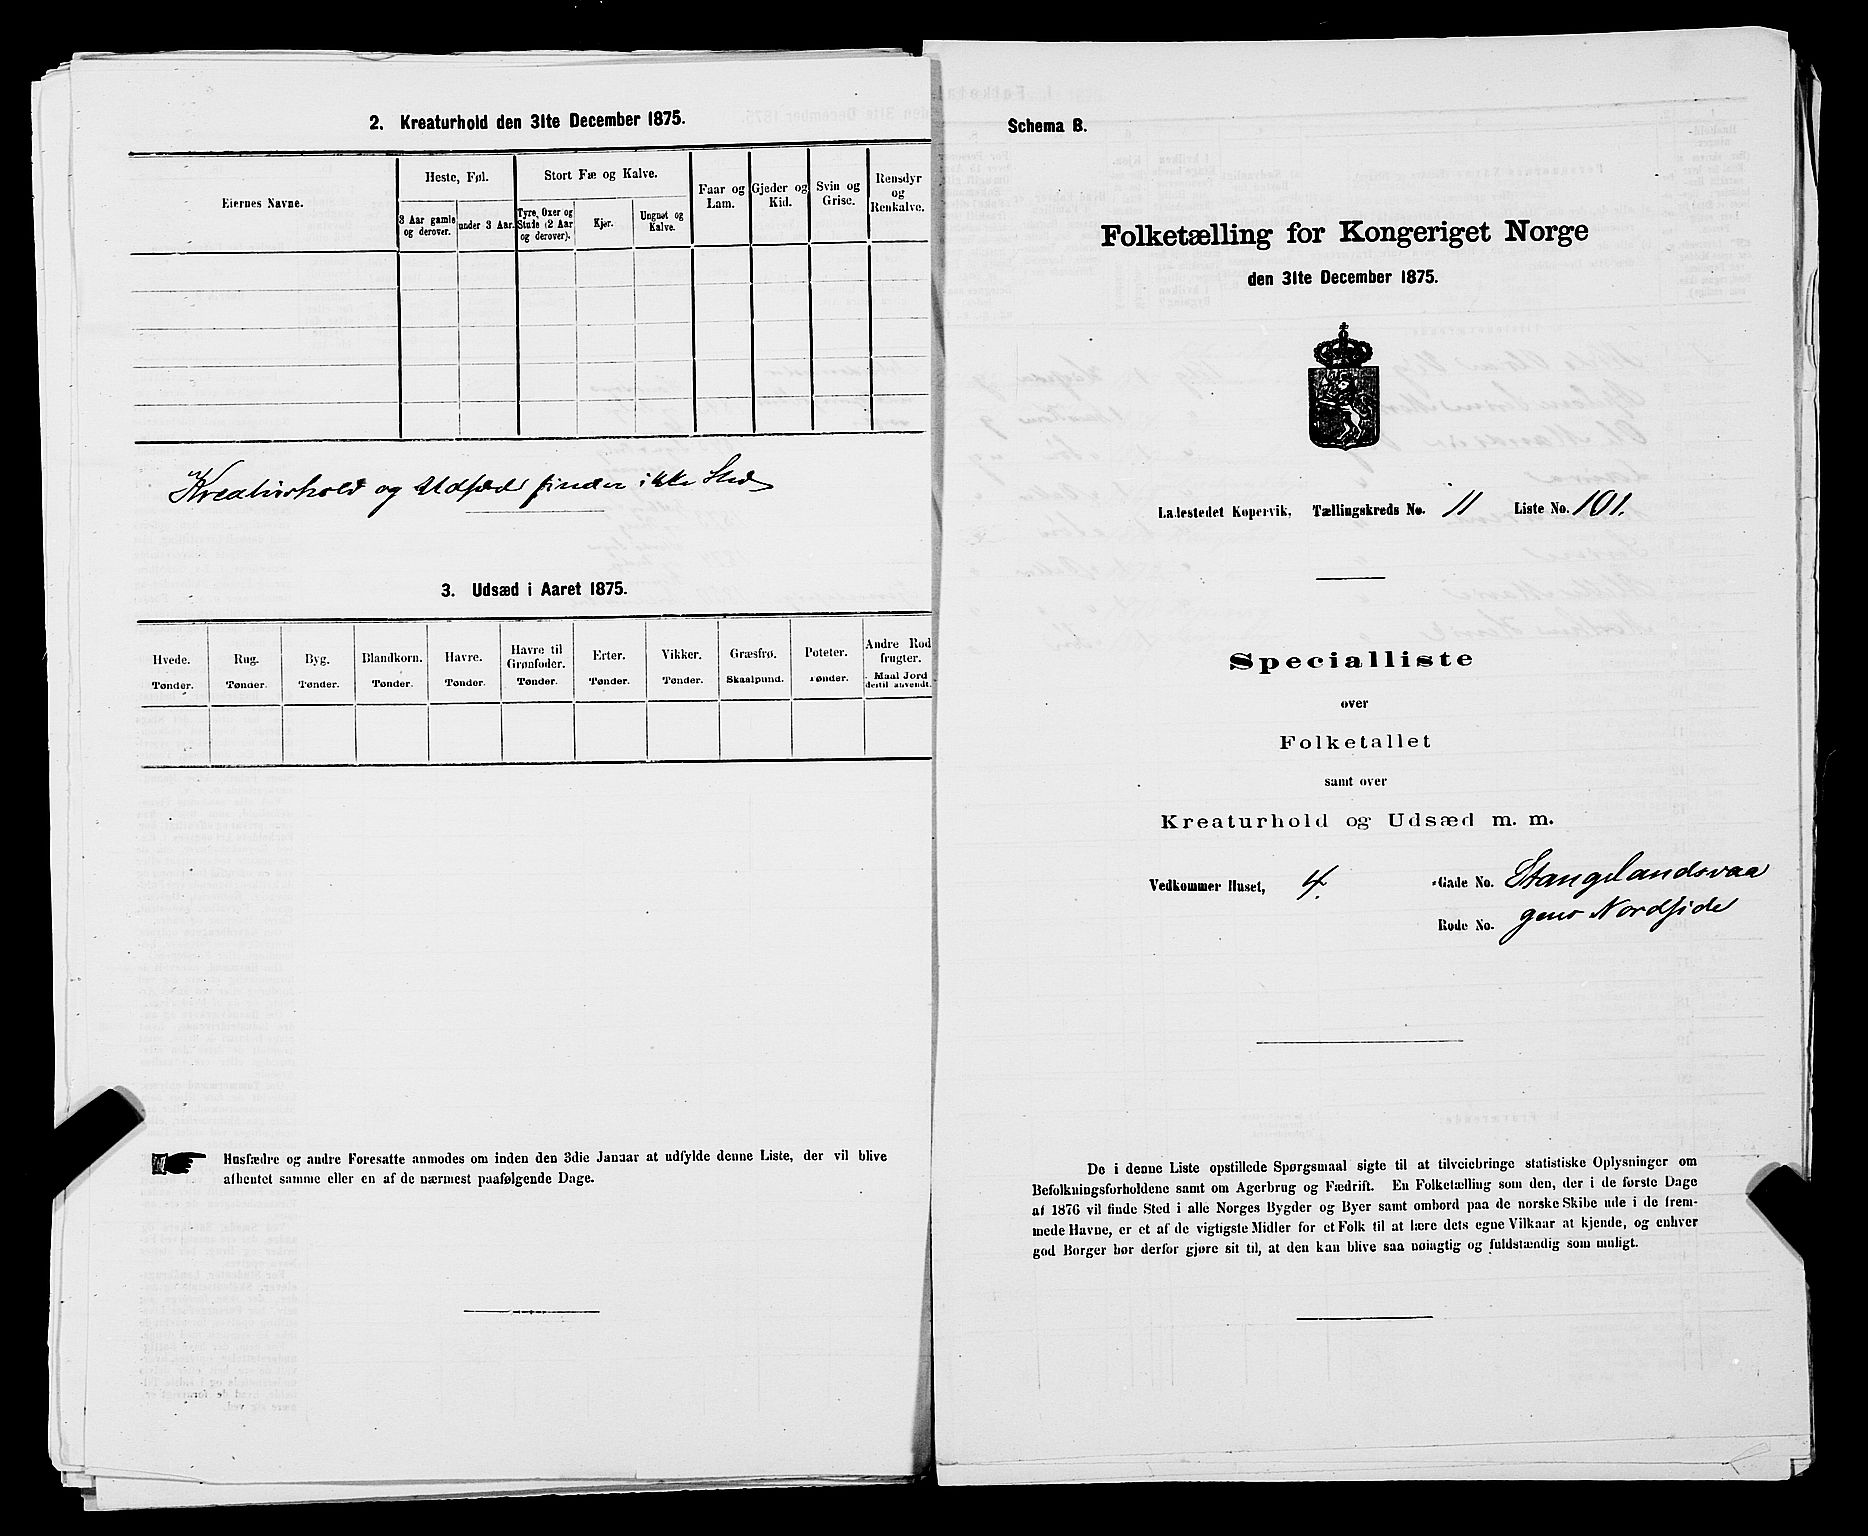 2. Kreaturhold den 31te December 1875.
Eiernes Navne.
Heste, Føl.
3 Aar gamle og derover.
under 3 Aar.
Stort Fæ og Kalve.
Tyre, Oxer og Stude (2 Aar og derover).
Kjør.
Ungnøt og Kalve.
Faar og Lam.
Gjeder og Kid.
Svin og Grise.
Rensdyr og Renkalve.
Kreaturhold og Udsæd finder ikke Sted
3. Udsæd i Aaret 1875.
Hvede. Tønder.
Rug. Tønder.
Byg. Tønder.
Blandkorn. Tønder.
Havre. Tønder.
Havre til Grønfoder. Tønder.
Erter. Tønder.
Vikker. Tønder.
Græsfrø. Skaalpund.
Poteter. Tønder.
Andre Rodfrugter. Maal Jord dertil anvendt.
Husfædre og andre Foresatte anmodes om inden den 3die Januar at udfylde denne Liste, der vil blive
afhentet samme eller en af de nærmest paafølgende Dage.
Schema B.
Folketælling for Kongeriget Norge
den 31te December 1875.
Ladestedet Kopervik, Tællingskreds No. 11 Liste No. 101.
Specialliste
over
Folketallet
samt over
Kreaturhold og Udsæd m. m.
Vedkommer Huset, 4. Gade No. Stangelandsvaa
Rode No. gens Nordside
De i denne Liste opstillede Spørgsmaal sigte til at tilveiebringe statistiske Oplysninger om
Befolkningsforholdene samt om Agerbrug og Fædrift. En Folketælling som den, der i de første Dage
af 1876 vil finde Sted i alle Norges Bygder og Byer samt ombord paa de norske Skibe ude i de frem-
mede Havne, er et af de vigtigste Midler for et Folk til at lære dets egne Vilkaar at kjende, og enhver
god Borger bør derfor gjøre sit til, at den kan blive saa nøiagtig og fuldstændig som muligt.